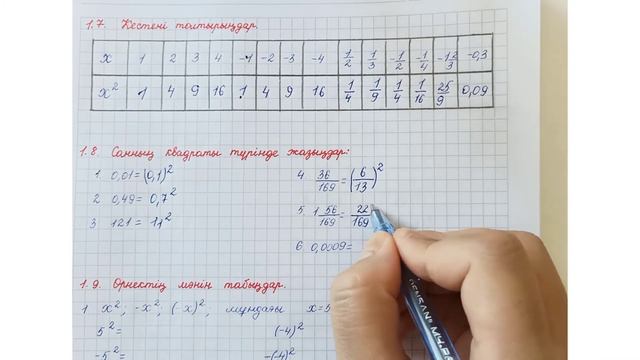 1.7. Кестені толтырыңдар.
x 1 2 3 4 -1 -2 -3 -4 1/2 1/3 -1/2 -1/4 -1 2/3 -0,3
x² 1 4 9 16 1 4 9 16 1/4 1/9 1/4 1/16 25/9 0,09
1.8. Санның квадраты түрінде жазыңдар:
1 0,01=(0,1)²
2 0,49= 0,7²
3 121 = 11²
4 36/169 = (6/13)²
5 1 56/169 = 22/169
6 0,0009=
1.9. Өрнектің мәнін табыңдар.
1 x², -x², (-x)², мұндағы x=5
5²= (-4)²
-5²= -(-4)²